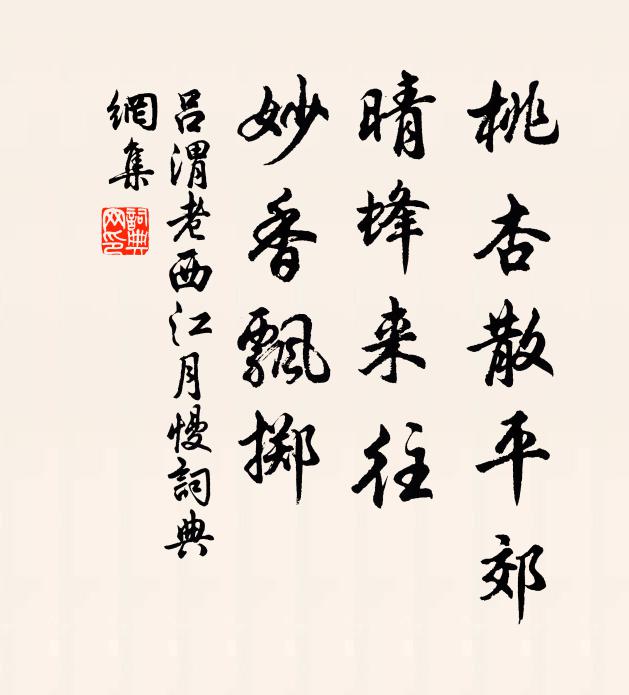 桃杏散平郊
晴蜂来往
妙香飄掷
吕渭老西江月慢詞典
網集
詞典网印